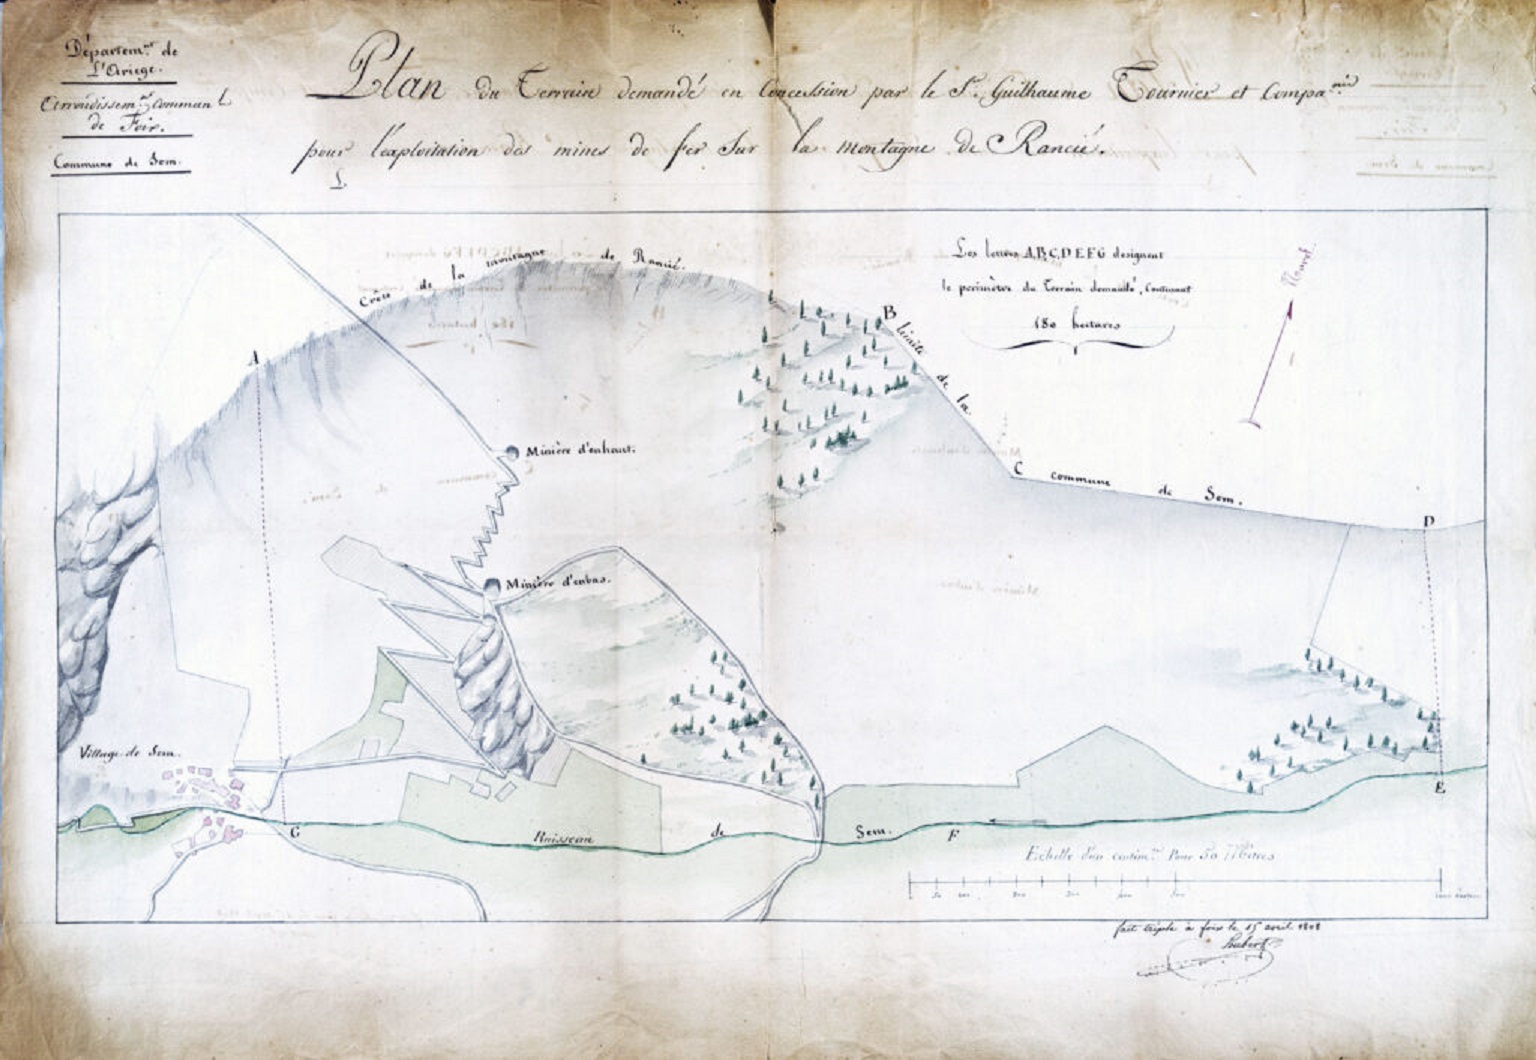 Départem.nt de
L'Ariege.
Arrondissem.nt Communal
de Foix.
Commune de Sem.
Plan du Terrain demandé en Concession par le S.r Guilhaume Tournier et Compa.nie
pour l'exploitation des mines de fer Sur la montagne de Rancié.
Crête de la montagne de Rancié.
Les lettres A,B,C,D,E,F,G designent
le perimètre du Terrain demandé, Contenant
180 hectares
Nord.
A
B
limite de la
C commune de Sem.
D
Minière d'enhaut.
Minière d'enbas.
Village de Sem.
E
G
Ruisseau de Sem.
F
Echelle d'un centim.tre Pour 50 Mètres
fait triple à foix le 15 avril 1808